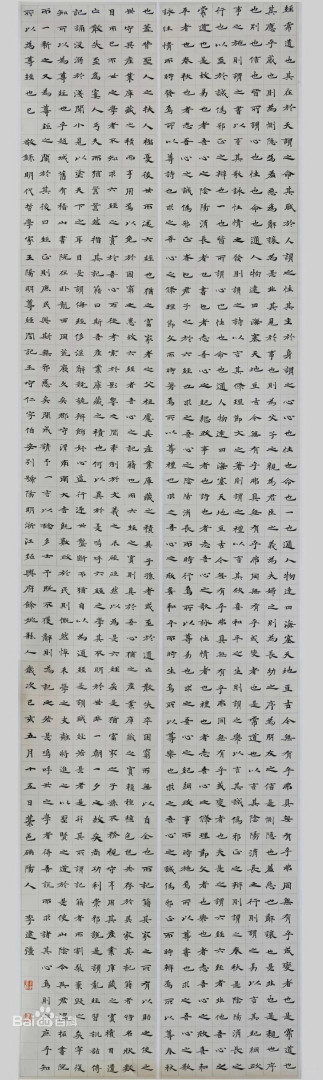 經常道也其在於天謂之命其賦於人謂之性其主於身謂之心心也性也命也一也通人物達四海塞天地亙古今無有乎弗具無有乎弗同無有乎或變者也是常道也
其應乎感也則為惻隱為羞惡為辭讓為是非其見於事也則為父子之親為君臣之義為夫婦之別為長幼之序為朋友之信是惻隱也羞惡也辭讓也是非也是親也序
也別也信也皆所謂心也性也命也通人物達四海塞天地亙古今無有乎弗具無有乎弗同無有乎或變者也是常道也以言其陰陽消長之行則謂之易以言其紀綱政
事之施則謂之書以言其歌詠性情之發則謂之詩以言其條理節文之著則謂之禮以言其欣喜和平之生則謂之樂以言其誠偽邪正之辯則謂之春秋是陰陽消長之
行也以至於誠偽邪正之辯也一也皆所謂心也性也命也通人物達四海塞天地亙古今無有乎弗具無有乎弗同無有乎或變者也夫是之謂六經六經者非他吾心之
常道也是故易也者志吾心之陰陽消長者也書也者志吾心之紀綱政事者也詩也者志吾心之歌詠性情者也禮也者志吾心之條理節文者也樂也者志吾心之欣喜和
平者也春秋也者志吾心之誠偽邪正者也君子之於六經也求之吾心之陰陽消長而時行焉所以尊易也求之吾心之紀綱政事而時施焉所以尊書也求之吾心之歌
詠性情而時發焉所以尊詩也求之吾心之條理節文而時著焉所以尊禮也求之吾心之欣喜和平而時生焉所以尊樂也求之吾心之誠偽邪正而時辯焉所以尊春秋
也蓋昔聖人之扶人極憂後世而述六經也猶之富家者之父祖慮其產業庫藏之積其子孫者或至於遺忘散失卒困窮而無以自全也而記籍其家之所有以貽之使之
世守其產業庫藏之積而享用焉以免於困窮之患故六經者吾心之記籍也而六經之實則具於吾心猶之產業庫藏之實積種種色色具存於其家其記籍者特名狀數
目而已而世之學者不知求六經之實於吾心而徒考索於影響之間牽制於文義之末硜硜然以為是六經矣是猶富家之子孫不務守視享用其產業庫藏之實積日遺
忘散失至為窶人丐夫而猶囂囂然指其記籍曰斯吾產業庫藏之積也何以異於是嗚呼六經之學其不明於世非一朝一夕之故矣尚功利崇邪說是謂亂經習訓詁傳
記誦沒溺於淺聞小見以塗天下之耳目是謂侮經侈淫辭競詭辯飾奸心盜行逐世壟斷而自以為通經是謂賊經若是者是并其所謂記籍者而割裂棄毀之矣寧復
知所以為尊經也乎越城舊有稽山書院在臥龍西岡荒廢久矣郡守渭南南大吉既敷政於民則慨然悼末學之支離將進之以聖賢之道於是使山陰令吳君瀛拓書院
而一新之又為尊經之閣於其後曰經正則庶民興庶民興斯無邪慝矣閣成請予一言以諗多士予既不獲辭則為記之若是嗚呼世之學者求諸其心焉則亦庶乎知
所以為尊經也已 敬錄明代哲學家王陽明尊經閣記王守仁字伯安別號陽明浙江紹興府餘姚縣人 歲次己亥五月十五日 榮邑陽人 李建
Baidu百科